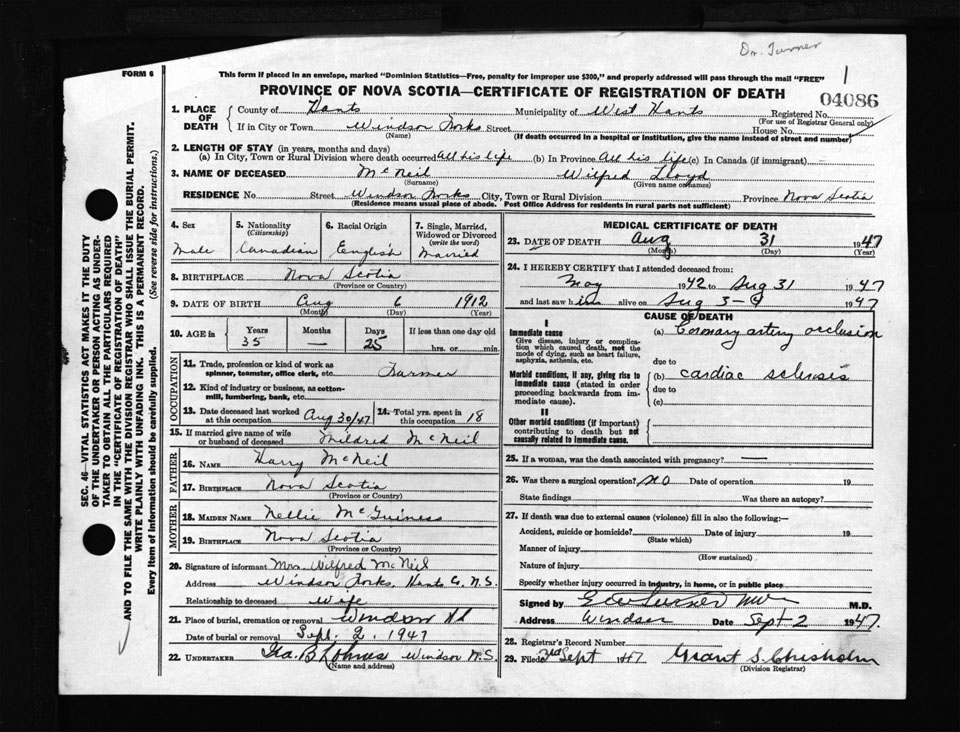 Dr. Turner
FORM 6
This form if placed in an envelope, marked "Dominion Statistics—Free, penalty for improper use $300," and properly addressed will pass through the mail "FREE"
1
PROVINCE OF NOVA SCOTIA—CERTIFICATE OF REGISTRATION OF DEATH
04086
SEC. 46—VITAL STATISTICS ACT MAKES IT THE DUTY
OF THE UNDERTAKER OR PERSON ACTING AS UNDER-
TAKER TO OBTAIN ALL THE PARTICULARS REQUIRED
IN THE "CERTIFICATE OF REGISTRATION OF DEATH"
AND TO FILE THE SAME WITH THE DIVISION REGISTRAR WHO SHALL ISSUE THE BURIAL PERMIT.
WRITE PLAINLY WITH UNFADING INK. THIS IS A PERMANENT RECORD.
Every item of information should be carefully supplied. (See reverse side for instructions.)
1. PLACE OF DEATH County of Hants Municipality of West Hants Registered No.
(For use of Registrar General only)
If in City or Town Windsor Forks Street House No.
(Name) (If death occurred in a hospital or institution, give the name instead of street and number)
2. LENGTH OF STAY (in years, months and days)
(a) In City, Town or Rural Division where death occurred All his life (b) In Province All his life (c) In Canada (if immigrant)
3. NAME OF DECEASED McNeil Wilfred Lloyd
(Surname) (Given name or names)
RESIDENCE No Street Windsor Forks City, Town or Rural Division Province Nova Scotia
(Residence means usual place of abode. Post Office Address for residents in rural parts not sufficient)
4. Sex 5. Nationality (Citizenship) 6. Racial Origin 7. Single, Married, Widowed or Divorced (write the word)
Male Canadian English Married
8. BIRTHPLACE Nova Scotia
(Province or Country)
9. DATE OF BIRTH Aug 6 1912
(Month) (Day) (Year)
10. AGE in Years Months Days If less than one day old
35 — 25 hrs. or min.
OCCUPATION
11. Trade, profession or kind of work as spinner, teamster, office clerk, etc. Farmer
12. Kind of industry or business, as cotton-mill, lumbering, bank, etc.
13. Date deceased last worked at this occupation Aug 30/47 14. Total yrs. spent in this occupation 18
15. If married give name of wife or husband of deceased Mildred McNeil
FATHER
16. NAME Harry McNeil
17. BIRTHPLACE Nova Scotia
(Province or Country)
MOTHER
18. MAIDEN NAME Nellie McGuiness
19. BIRTHPLACE Nova Scotia
(Province or Country)
20. Signature of informant Mrs. Wilfred McNeil
Address Windsor Forks, Hants Co. N.S.
Relationship to deceased Wife
21. Place of burial, cremation or removal Windsor NS
Date of burial or removal Sept. 2, 1947
22. UNDERTAKER Windsor N.S.
(Name and address)
MEDICAL CERTIFICATE OF DEATH
23. DATE OF DEATH Aug 31 1947
(Month) (Day) (Year)
24. I HEREBY CERTIFY that I attended deceased from:
1942 to Aug 31 1947
and last saw him alive on Aug 1947
CAUSE OF DEATH
I
Immediate cause (a) Coronary artery occlusion
Give disease, injury or complica-
tion which caused death, not the
mode of dying, such as heart failure,
asphyxia, asthenia, etc. due to
Morbid conditions, if any, giving rise to
immediate cause (stated in order
proceeding backwards from im-
mediate cause).
(b) cardiac sclerosis
due to
(c)
II
Other morbid conditions (if important)
contributing to death but not
causally related to immediate cause.
25. If a woman, was the death associated with pregnancy? —
26. Was there a surgical operation? No Date of operation 19
State findings Was there an autopsy?
27. If death was due to external causes (violence) fill in also the following:—
Accident, suicide or homicide? Date of injury 19
(State which)
Manner of injury
(How sustained)
Nature of injury
Specify whether injury occurred in industry, in home, or in public place
Signed by Turner M.D.
Address Windsor Date Sept 2 1947.
28. Registrar's Record Number
29. Filed Sept 1947 Grant S. Chisholm
(Division Registrar)